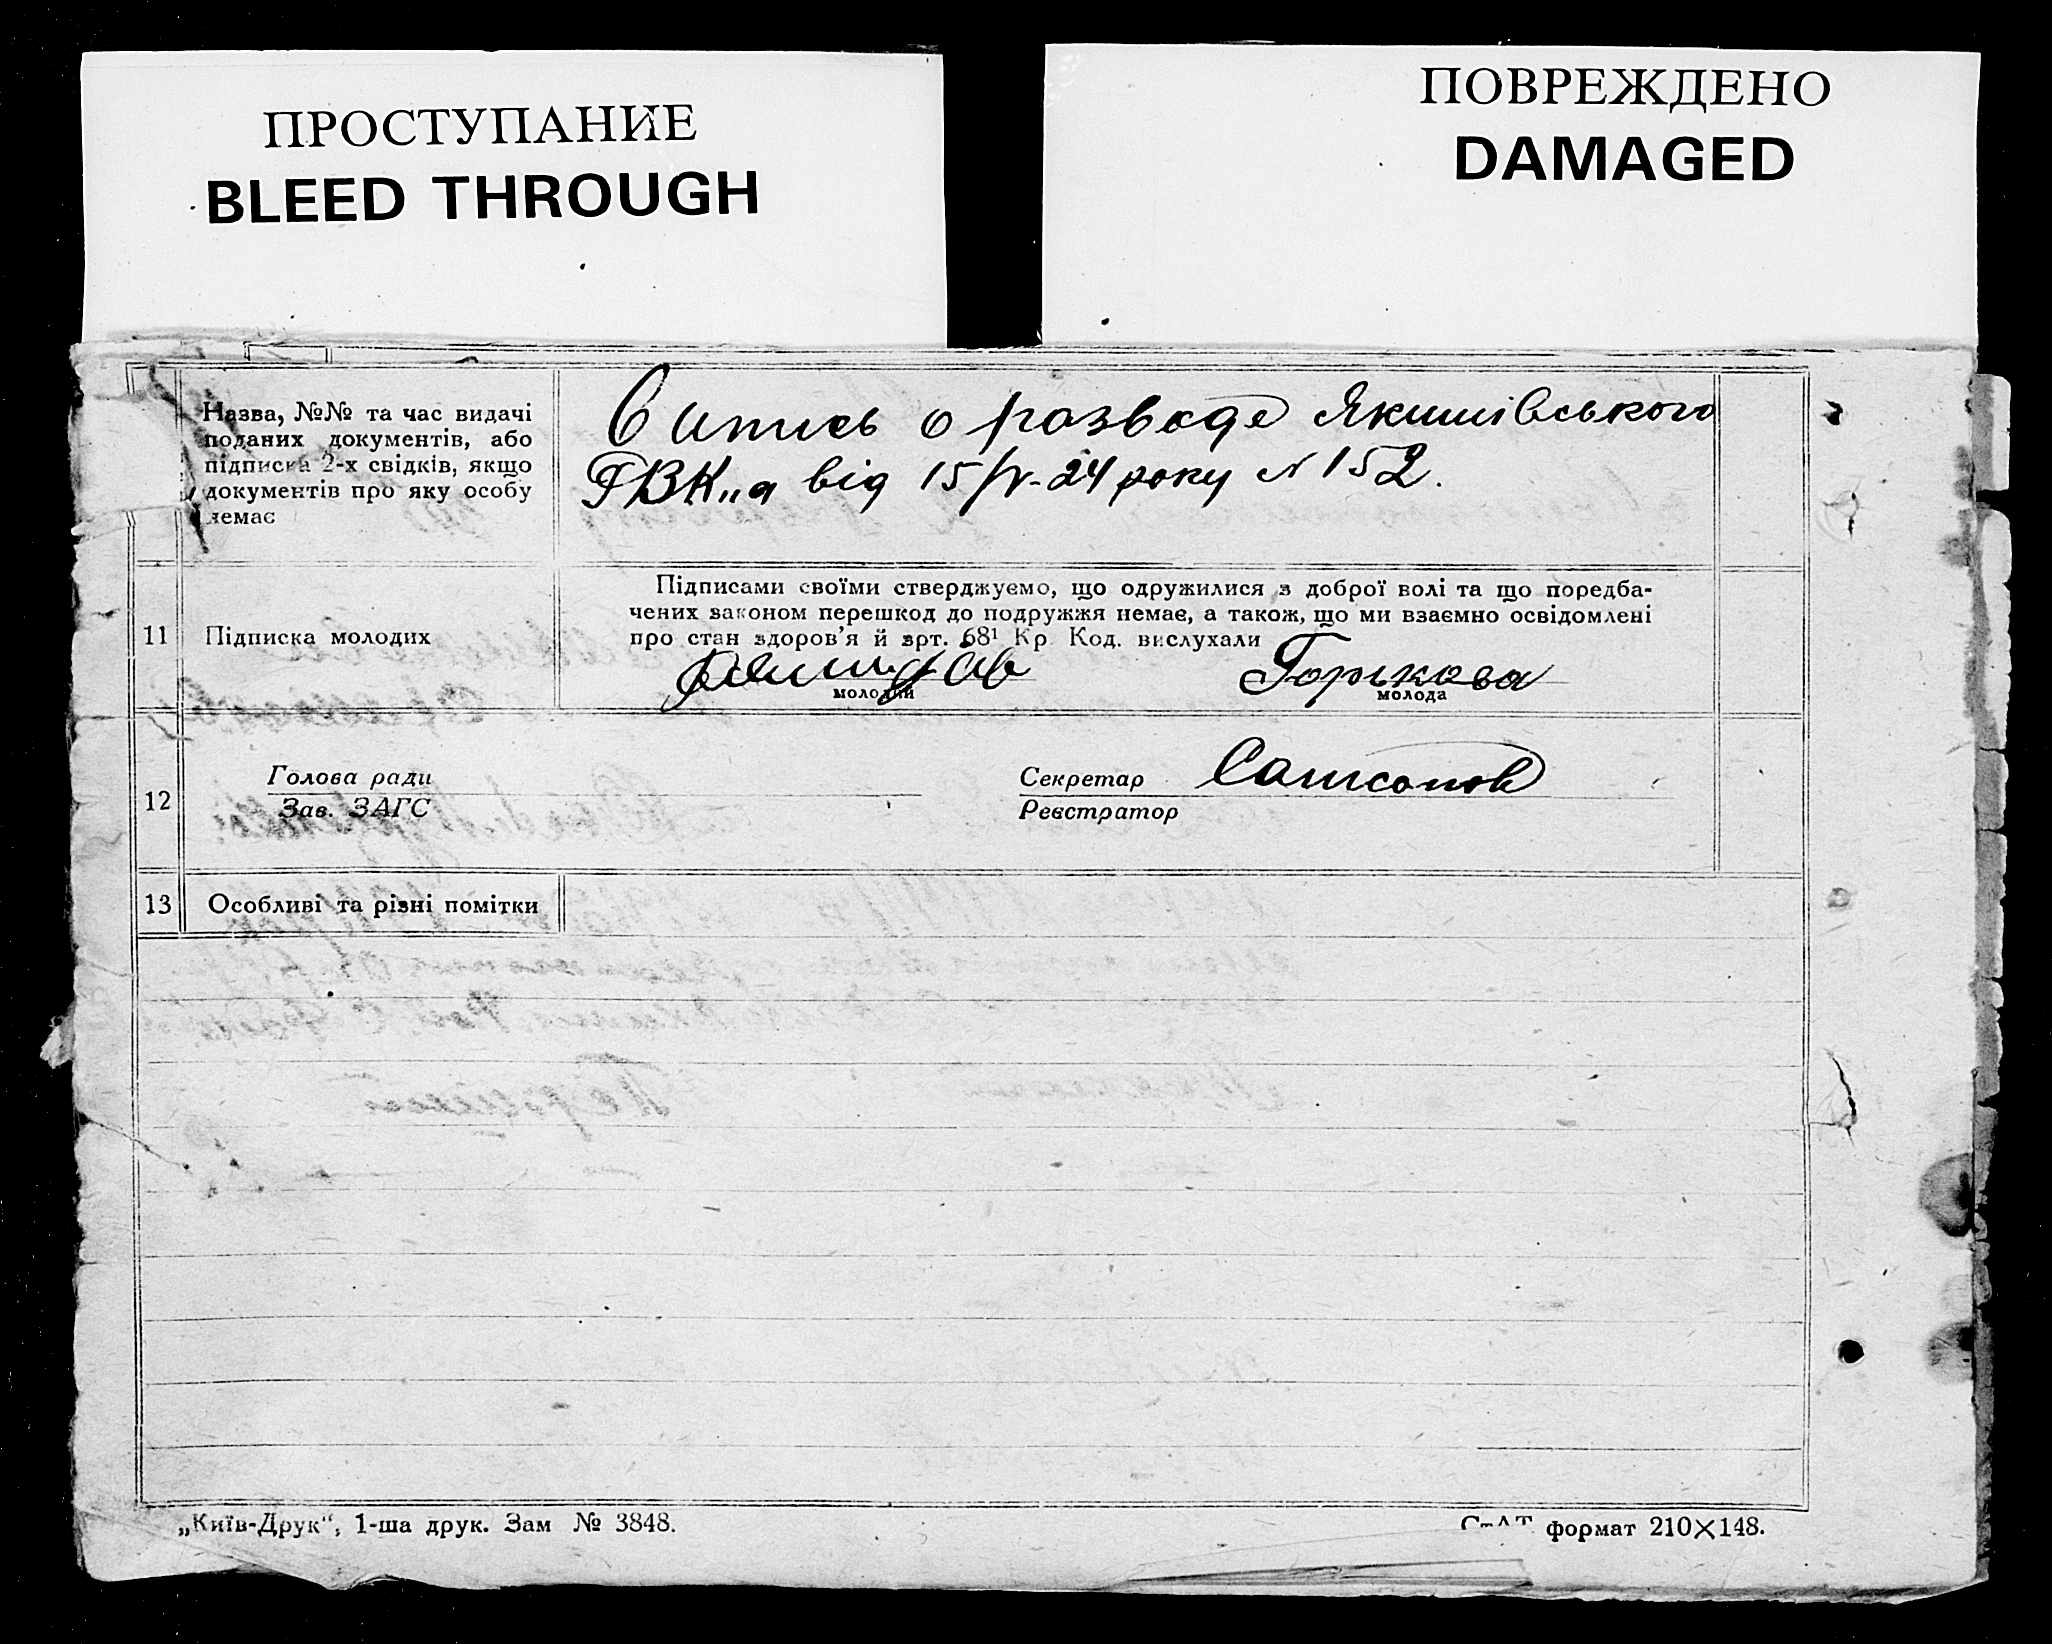 ПРОСТУПАНИЕ
BLEED THROUGH
ПОВРЕЖДЕНО
DAMAGED
Назва, №№ та час видачі
поданих документів, або
підписка 2-х свідків, якщо
документів про яку особу
немає
о разводе Якимівського
РВК„а від 15/IV-24 року № 152.
11
Підписка молодих
Підписами своїми стверджуємо, що одружилися з доброї волі та що поредба-
чених законом перешкод до подружжя немає, а також, що ми взаємно освідомлені
про стан здоров'я й арт. 68¹ Кр Код. вислухали
молодий
Горькова
молода
12
Голова ради
Зав. ЗАГС
Секретар
Реєстратор
Самсонов
13
Особливі та різні помітки
„Київ-Друк", 1-ша друк. Зам № 3848.
СтАТ формат 210×148.